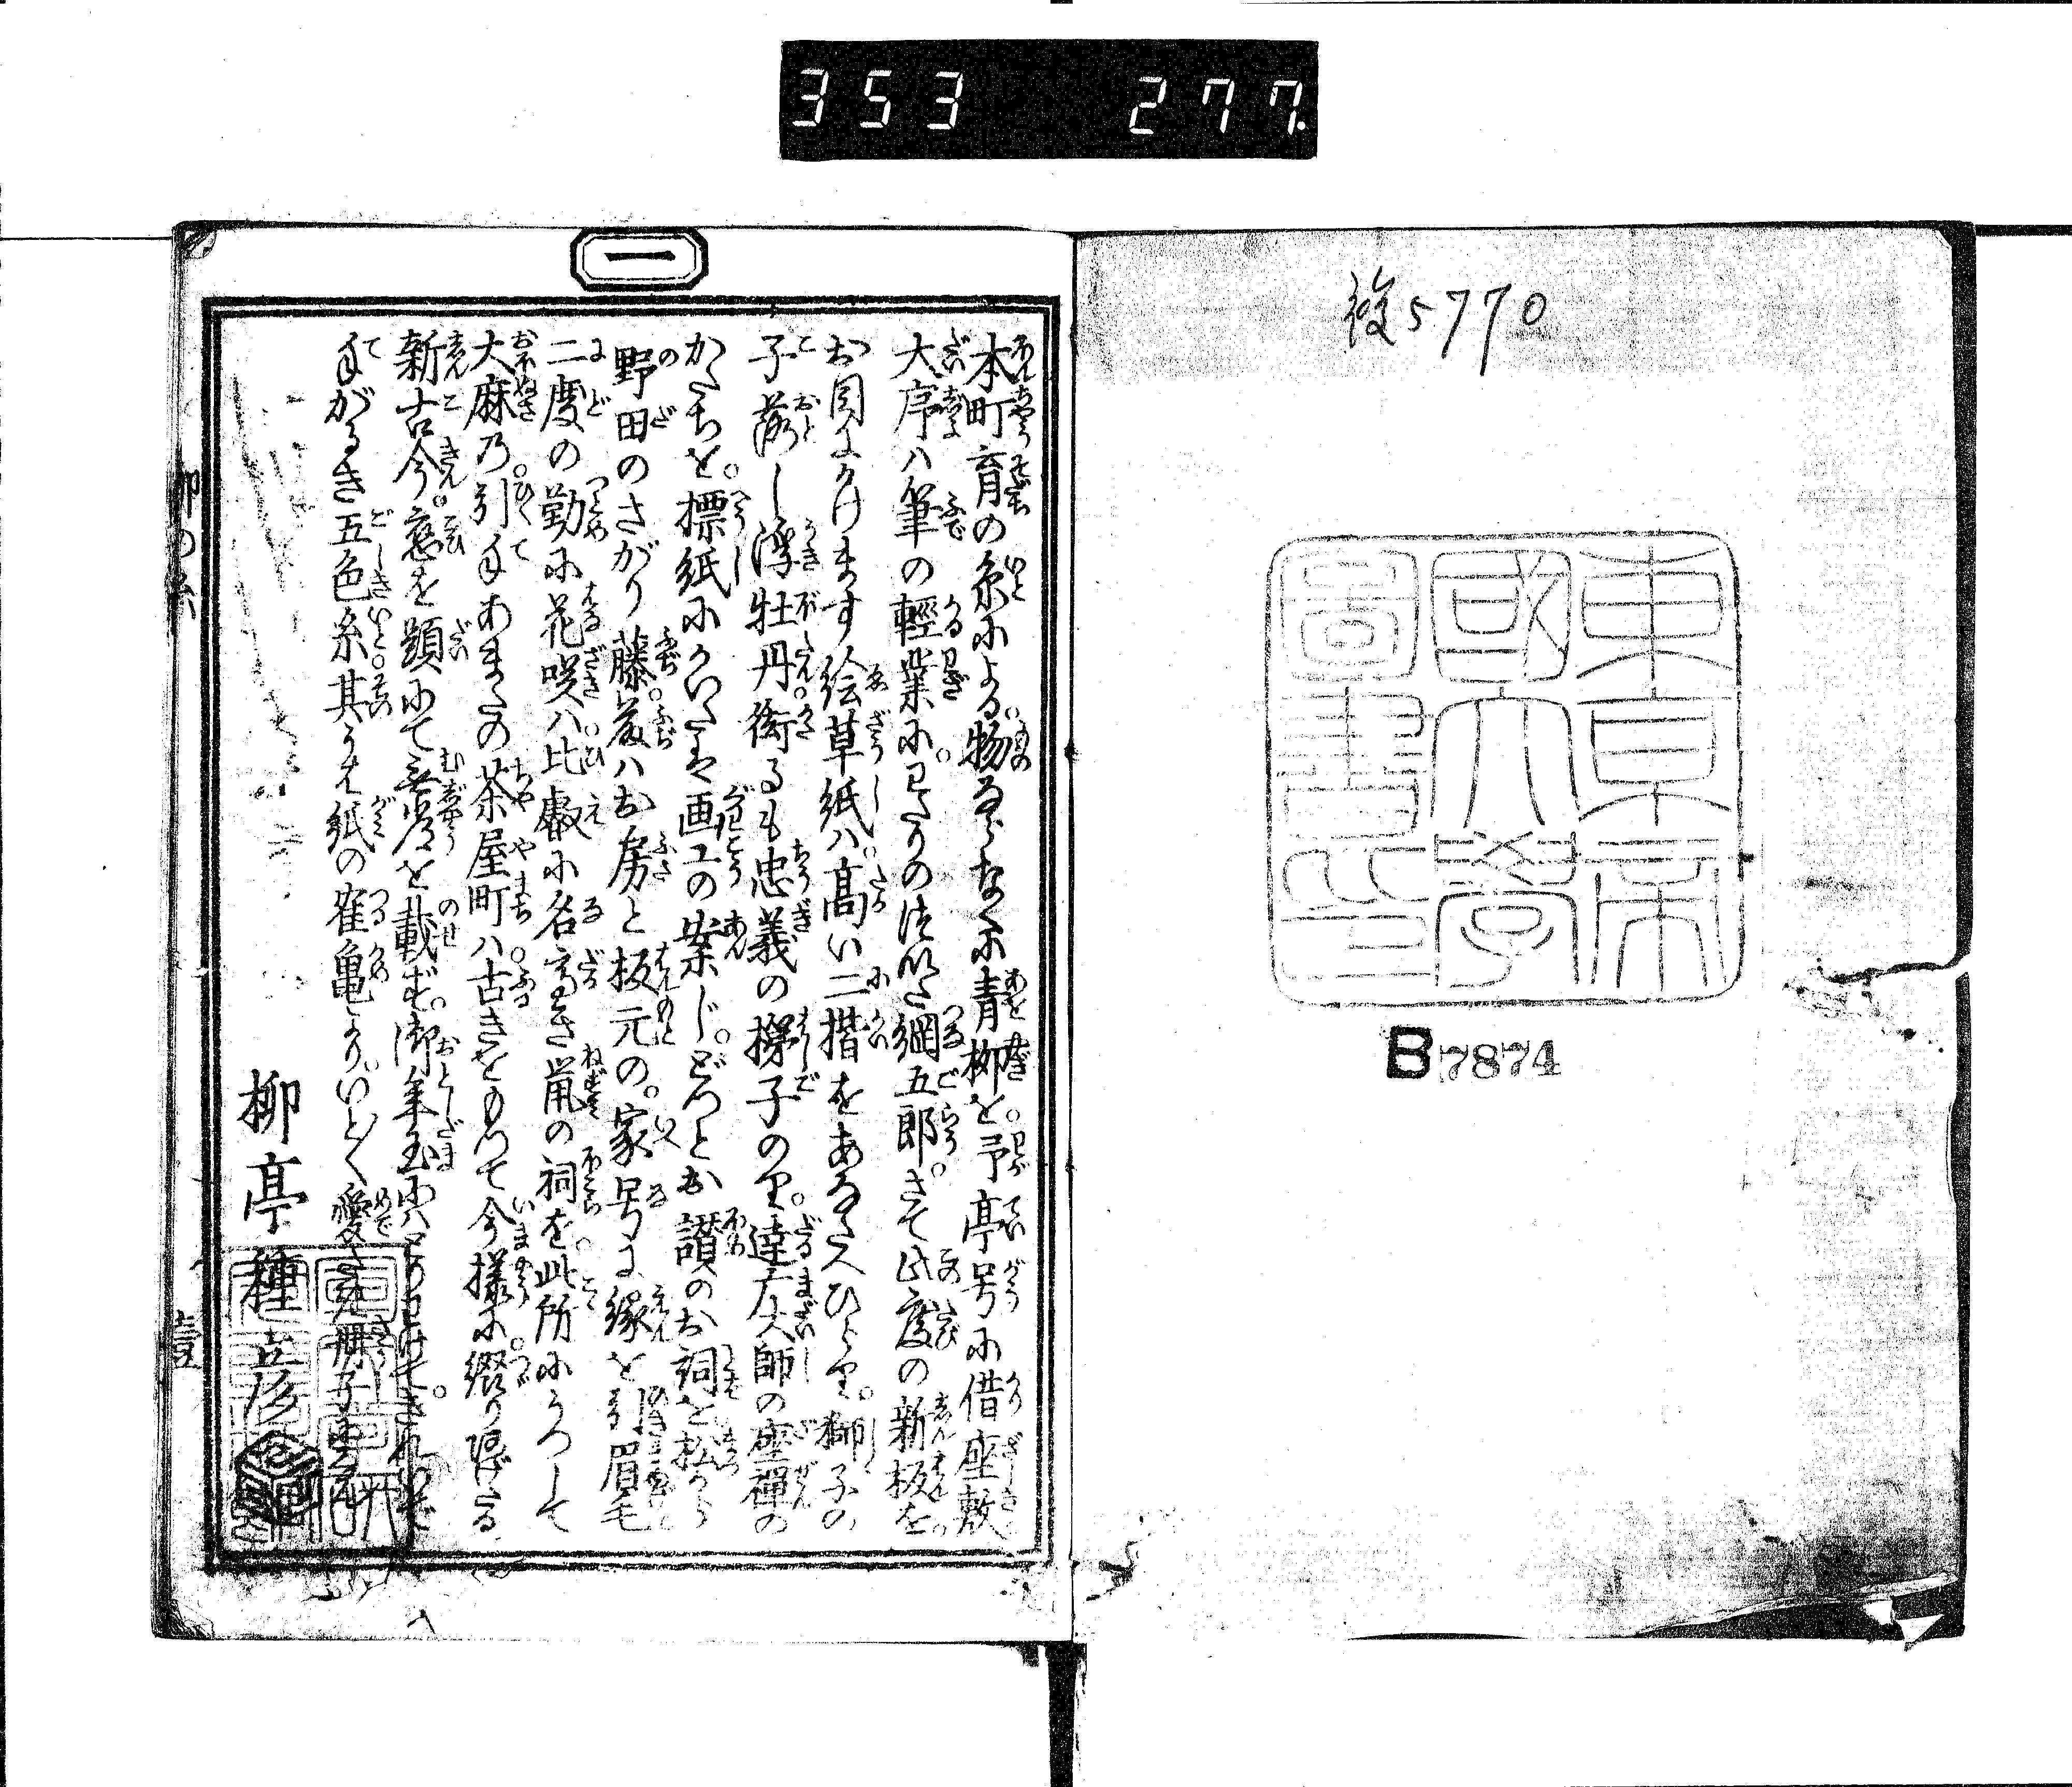 353 277.
複5770
東京帝
國大學
圖書印
B7874
一
本町育の糸による。物ならなくに青柳を。予亭号に借座敷。
大序ハ筆の軽業に。わたりの付た綱五郎。さて此度の新板を。
お目にかけます絵草紙ハ。高い二揩をあなたへひらり。獅子の
子落し浮牡丹。銜るも忠義の梯子のり。達广大師の座禅の
かたちを。標紙にかいたは画工の案じ。どろとお讃のお詞を松から
野田のさがり藤。藤ハお房と板元の。家号に縁を引眉毛
二度の勤に花咲ハ。比叡に名高き鼠の祠を。此所にうつして
大麻乃。引手あまたの茶屋町ハ。古きをもつて今様に。綴り
新古今。恋を題にて無常を載ず。御年玉にハ
手がるき五色糸。其うへ紙の寉亀より。いと／＼愛
柳亭種彦
柳の糸
壹